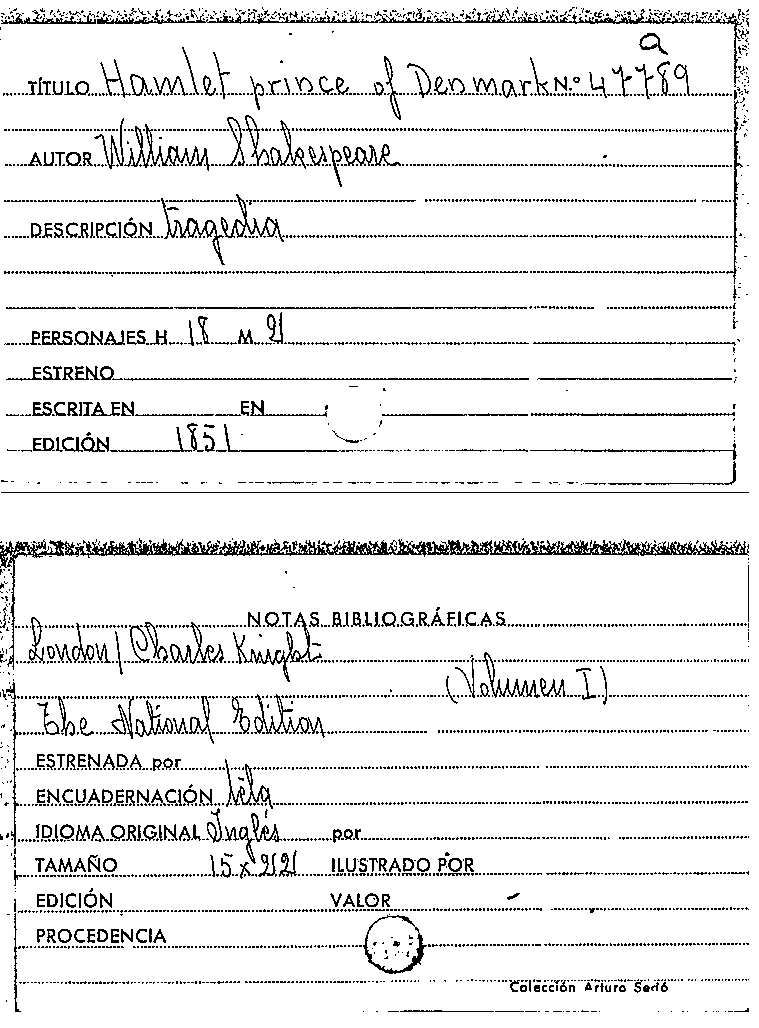 a
TÍTULO Hamlet prince of Denmark N.º 47789
AUTOR William Shakespeare
DESCRIPCIÓN tragedia
PERSONAJES H 18 M 2
ESTRENO
ESCRITA EN EN
EDICIÓN 1851
NOTAS BIBLIOGRÁFICAS
London / Charles Knight
(Volumen I)
The National Edition
ESTRENADA por
ENCUADERNACIÓN tela
IDIOMA ORIGINAL Inglés por
TAMAÑO 15 x 22 ILUSTRADO POR
EDICIÓN VALOR -
PROCEDENCIA
Colección Arturo Sedó